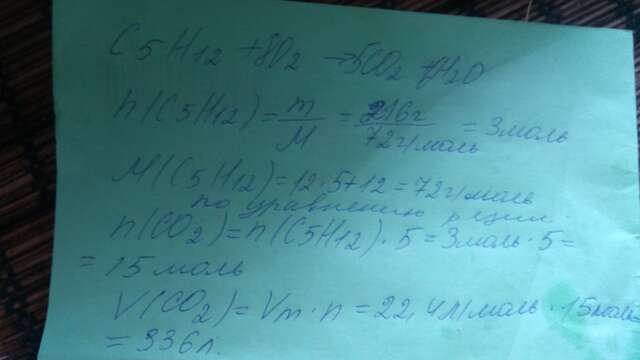 C5H12 + 8O2 → 5CO2 + H2O
n(C5H12) = m/M = 216г/72г/моль = 3моль
M(C5H12) = 12·5+12 = 72г/моль
по уравнению р-ции:
n(CO2) = n(C5H12)·5 = 3моль·5 =
= 15 моль
V(CO2) = Vm·n = 22,4л/моль·15моль=
= 336л.